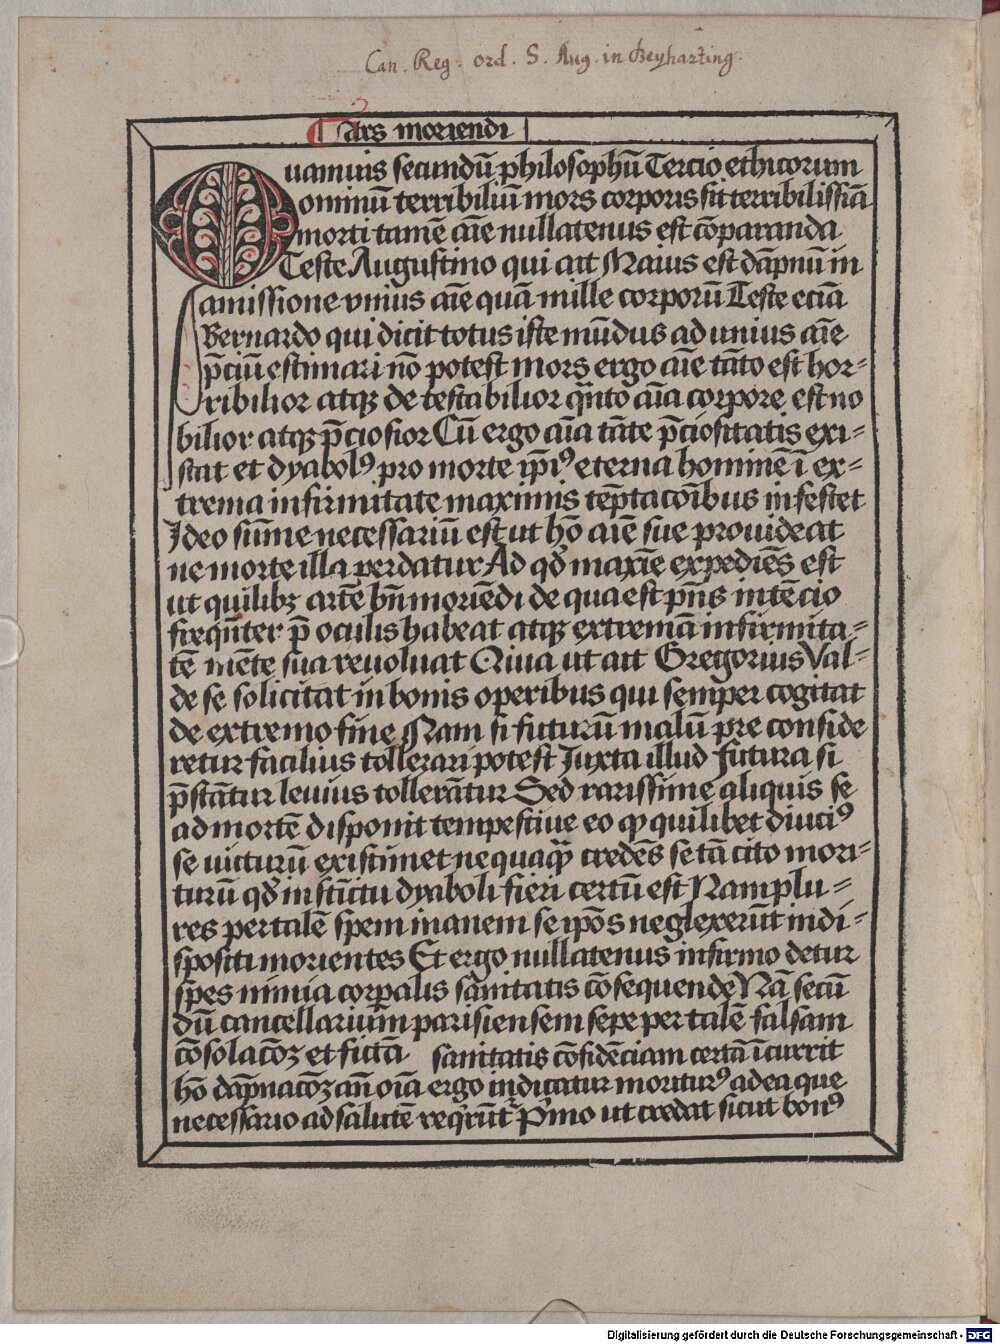 Can. Reg. ord. S. Aug. in Beyharting.
Ars moriendi
Quamuis secundū philosophū Tercio ethicorum
omniū terribiliū mors corporis sit terribilissīa
morti tamē aīe nullatenus est cōparanda
Teste Augustino qui ait Maius est dāpnū in
amissione vnius aīe quā mille corporū Teste eciā
Bernardo qui dicit totus iste mūdus ad unius aīe
p̄ciū estimari nō potest mors ergo aīe tāto est hor=
ribilior atqꝫ detestabilior qn̄to aīa corpore est no
bilior atqꝫ p̄ciosior Cū ergo aīa tāte p̄ciositatis exi=
stat et dyabolꝰ pro morte ip̄iꝰ eterna hominē ī ex=
trema infirmitate maximis tēptacōibus infestet
Ideo sūme necessariū est ut hō aīe sue prouideat
ne morte illa perdatur Ad qd̄ maxīe expediēs est
ut quilibꝫ artē bn̄ moriēdi de qua est pn̄s intēcio
frequn̄ter p̄ oculis habeat atqꝫ extremā infirmita=
tē mēte sua reuoluat Quia ut ait Gregorius Val=
de se solicitat in bonis operibus qui semper cogitat
de extremo fine Nam si futurū malū pre conside
retur facilius tollerari potest Iuxta illud futura si
p̄stātur leuius tollerātur Sed rarissime aliquis se
ad mortē disponit tempestiue eo ꝙ quilibet diuciꝰ
se uicturū existimet nequaq̄ credēs se tā cito mori=
turū qd̄ instīctu dyaboli fieri certū est Nam plu=
res per talē spem inanem se ip̄os neglexerūt indi=
spositi morientes Et ergo nullatenus infirmo detur
spes nimia corp̄alis sanitatis cōsequende Nā secū
dū cancellarium parisiensem sepe per talē falsam
cōsolacōꝫ et fictā sanitatis cōfidēciam certā īcurrit
hō dāpnacōꝫ an̄ oīa ergo inducatur moriturꝰ ad ea que
necessario ad salutē req̄rūt̄ P̄mo ut credat sicut bonꝰ
Digitalisierung gefördert durch die Deutsche Forschungsgemeinschaft - DFG